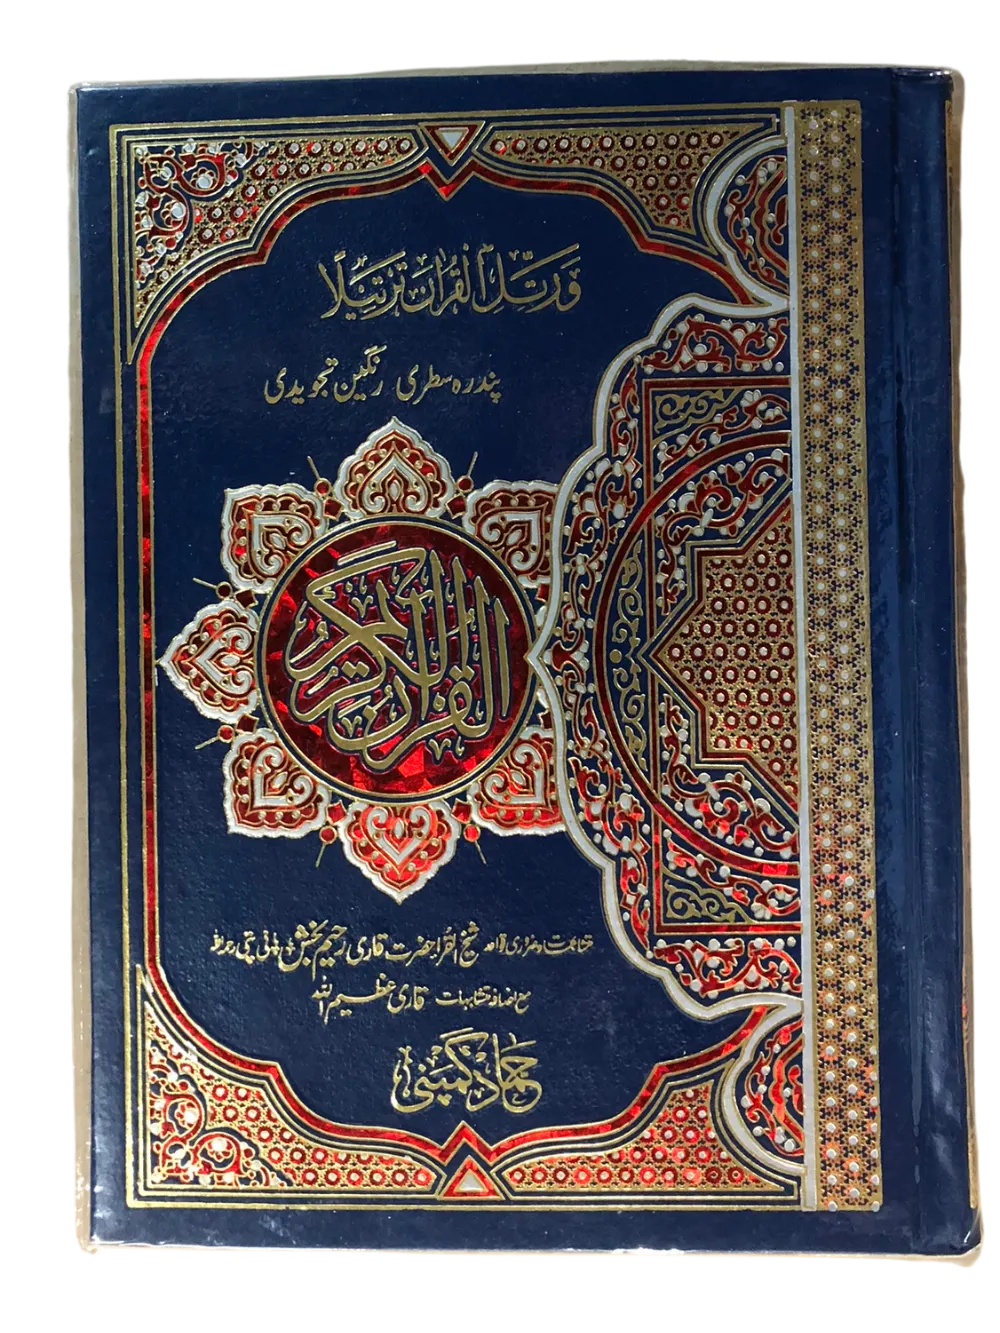 وَرَتِّلِ الْقُرْآنَ تَرْتِيْلًا
پندرہ سطری رنگین تجویدی
القرآن الكريم
متشابہات و ضروری قواعد شیخ القراء حضرت قاری رحیم بخش پانی پتی رحمہ اللہ
مع اضافہ متشابہات قاری عظیم اللہ
حماد کمپنی